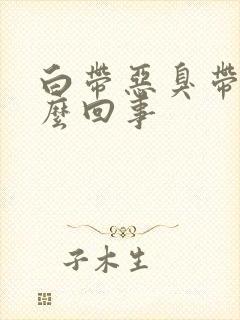 白帶惡臭帶
麼回事
子木生